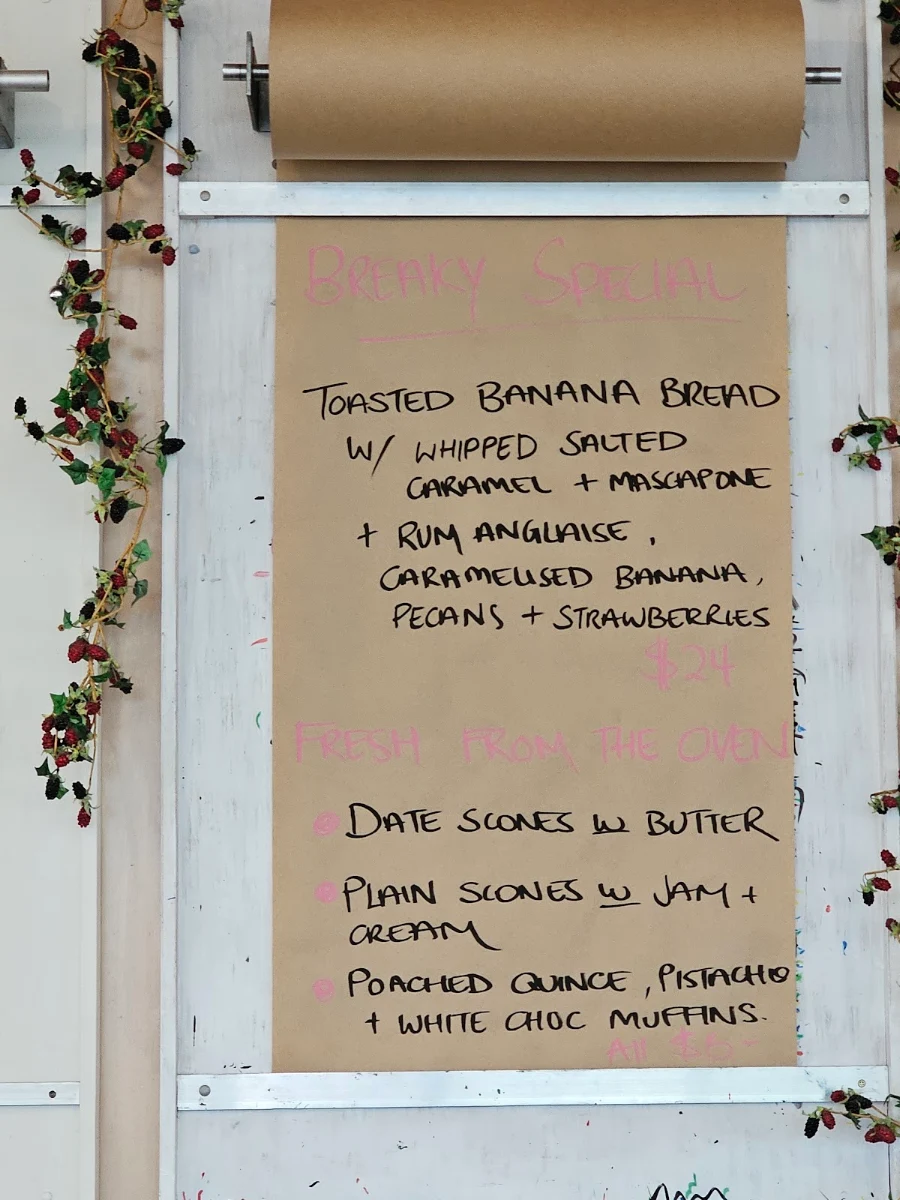 BREAKY SPECIAL
TOASTED BANANA BREAD
W/ WHIPPED SALTED
CARAMEL + MASCAPONE
+ RUM ANGLAISE,
CARAMELISED BANANA,
PECANS + STRAWBERRIES
$24
FRESH FROM THE OVEN
DATE SCONES W BUTTER
PLAIN SCONES W JAM +
CREAM
POACHED QUINCE, PISTACHIO
+ WHITE CHOC MUFFINS.
All